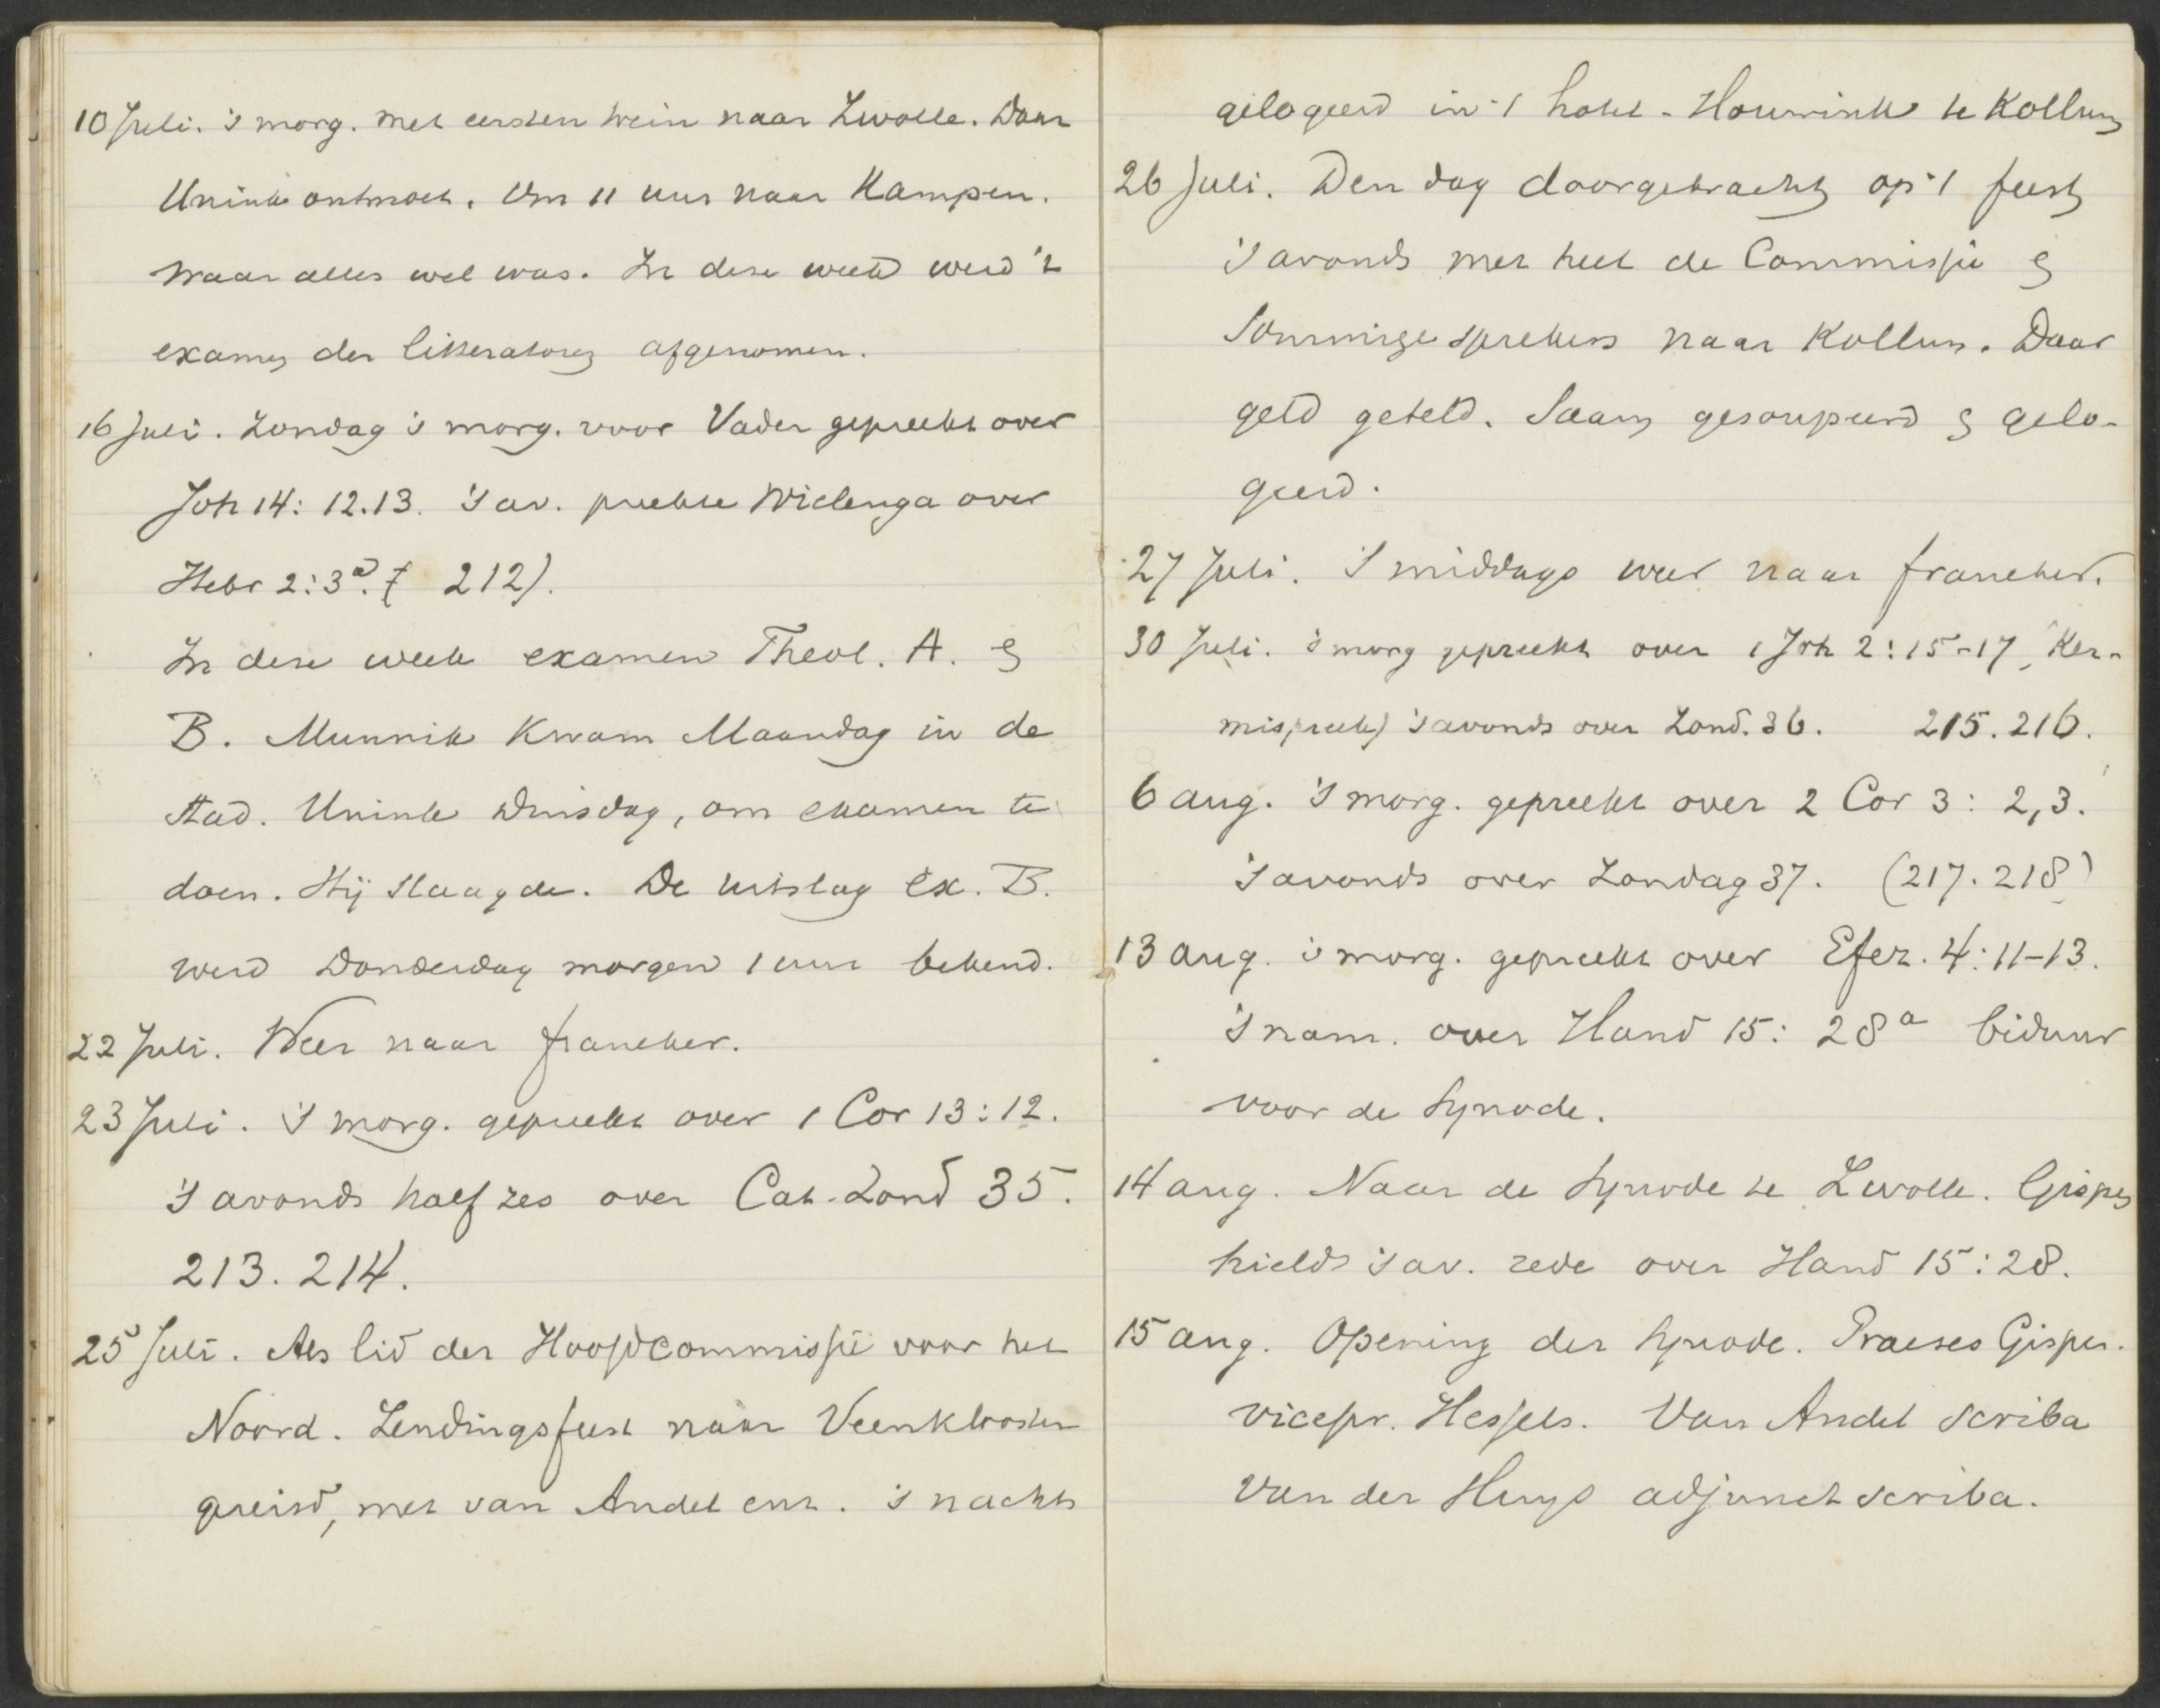 10 Juli. 's morg. met eersten trein naar Zwolle. Daar
Unink ontmoet. Om 11 uur naar Kampen.
waar alles wel was. In deze week werd 't
examen der litteratoren afgenomen.
16 Juli. Zondag 's morg. voor Vader gepreekt over
Joh 14: 12.13. 's av. preekte Wielenga over
Hebr 2:3a. ( 212).
In deze week examen Theol. A. en
B. Munnik kwam Maandag in de
stad. Unink Dinsdag, om examen te
doen. Hij slaagde. De uitslag Ex. B.
werd Donderdag morgen 1 uur bekend.
22 Juli. Weer naar Franeker.
23 Juli. 's morg. gepreekt over 1 Cor 13:12.
's avonds half zes over Cat. Zond 35.
213. 214.
25 Juli. Als lid der Hoofdcommissie voor het
Noord. Zendingsfeest naar Veenklooster
gereisd, met van Andel enz. 's nachts
gelogeerd in 't hotel - Houwink te Kollum
26 Juli. Den dag doorgebracht op 't feest
's avonds met heel de Commissie en
sommige sprekers naar Kollum. Daar
geld geteld. Saam gesoupeerd en gelo-
geerd.
27 Juli. 's middags weer naar Franeker.
30 Juli. 's morg gepreekt over 1 Joh 2:15-17, (Ker-
mispreek) 's avonds over Zond. 36. 215. 216.
6 Aug. 's morg. gepreekt over 2 Cor 3: 2,3.
's avonds over Zondag 37. (217. 218)
13 Aug. 's morg. gepreekt over Efez. 4:11-13.
's nam. over Hand 15: 28a biduur
voor de Synode.
14 Aug. Naar de Synode te Zwolle. Gispen
hield 's av. rede over Hand 15:28.
15 Aug. Opening der Synode. Praeses Gispen.
vicepr. Hessels. Van Andel scriba
Van der Huys adjunct scriba.